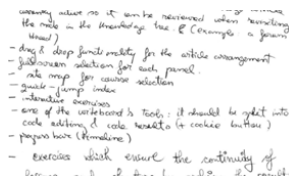 so it can be reviewed when
the node in the knowledge tree. (example a forum
thread)
- drag & drop functionality for the article arrangement
- fullscreen selection for each panel.
- site map for course selection
- quick-jump index
- interactive exercises
- one of the whiteboard's tools: it should be split into
code editing & code results (+ cookie button)
- progress bars (timeline)
- exercises which ensure the continuity of